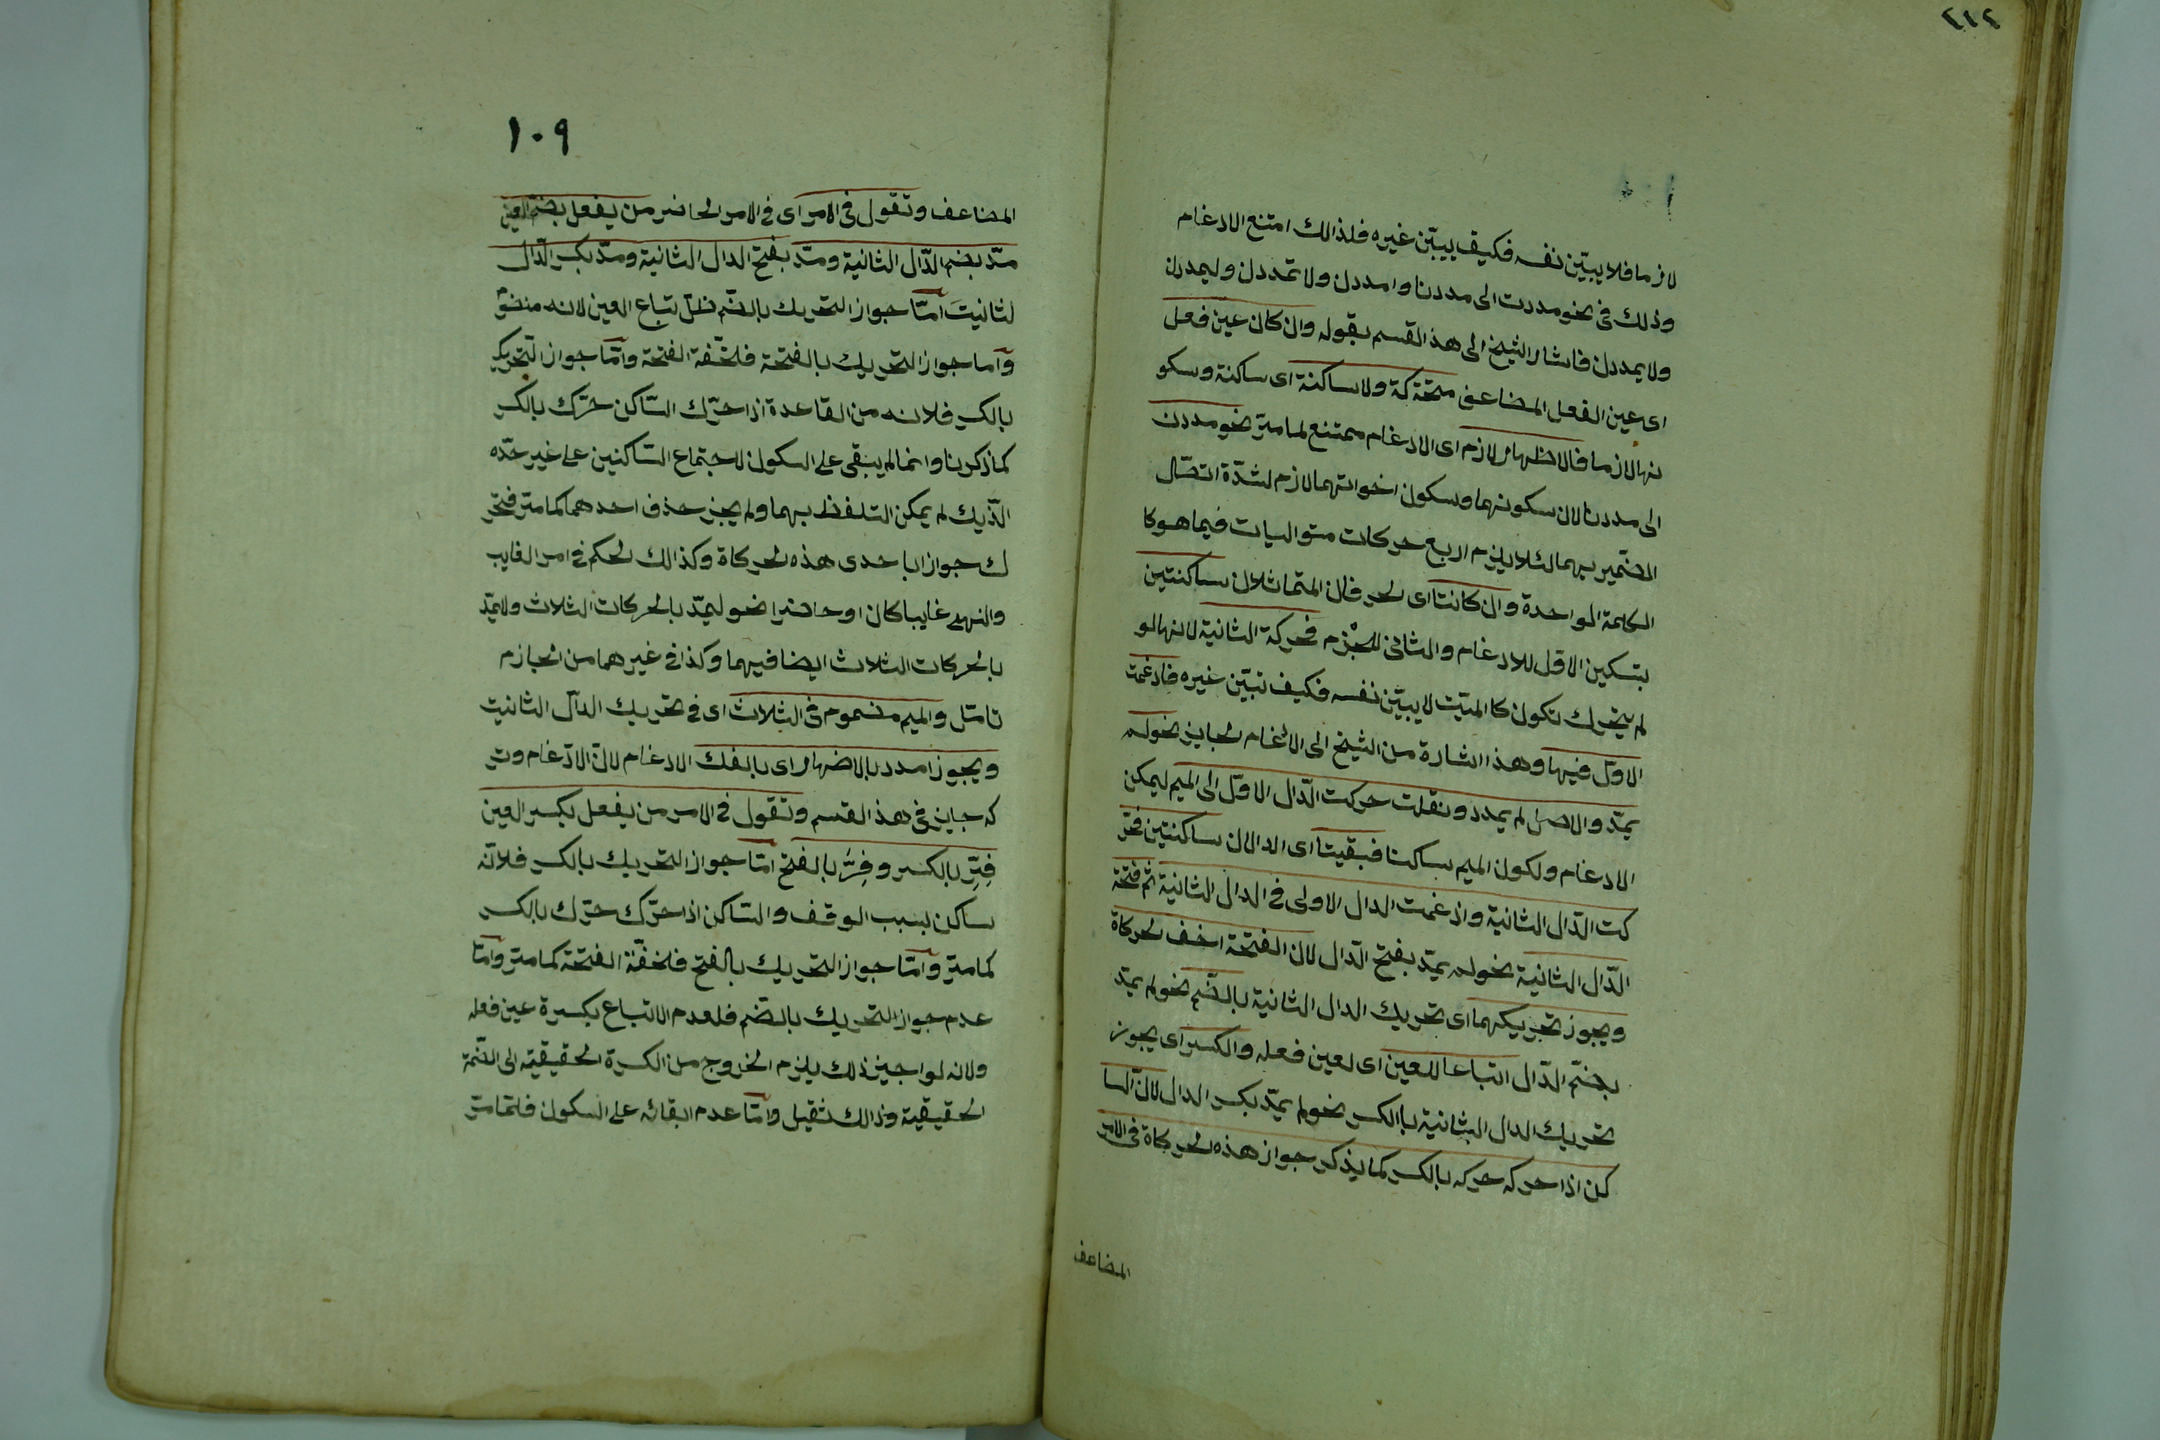 ٢١٢
لازما فلا يبيّن نفسه فكيف يبيّن غيره فلذالك امتنع الادغام
وذلك فى نحو مددت الى مددنا وامددن ولا تمددن وليمددن
ولا يمددن فاشار الشيخ الى هذ القسم بقوله وان كان عين فعل
اى عين الفعل المضاعف متحرّكة ولا ساكنة اى ساكنة وسكو
نها لازما فالاظهار لازم اى الادغام ممتنع لما مرّ نحو مددن
الى مددنا لان سكونهما وسكون اخواتهما لازم لشدّة اتصّال
الضّمير بهما لئلا يلزم اربع حركات متواليات فيما هو كا
الكلمة الواحدة وان كانتا اى الحرفان المتماثلان ساكنتين
بتسكين الاوّل للادغام والثانى للجزم فحركة الثانية لانها لو
لم يتحرك تكون كالميّت لا يبيّن نفسه فكيف تبيّن غيره فادغمت
الاوّل فيها وهذا اشارة من الشيخ الى الادغام الجايز نحو لم
يمدّ والاصل لم يمدد ونقلت حركت الدّال الاوّل الى الميم ليمكن
الادغام ولكون الميم ساكنا فبقيتا اى الدالان ساكنتين فحرّ
كت الدّال الثانية وادغمت الدال الاولى فى الدال الثانية ثم فتحة
الدّال الثانية نحو لم يمدّ بفتح الدّال لان الفتحة اخف الحركاة
ويجوز تحريكهما اى تحريك الدال الثانية بالضّم نحو لم يمدّ
بضمّ الدّال اتباعا للعين اى لعين فعله والكسر اى يجوز
تحريك الدال الثانية باالكسر نحو لم يمدّ بكسر الدال لانّ السا
كن اذا حركه حركه بالكسر كما يذكر جواز هذه الحركاة فى الامر
المضاعف
١٠٩
المضاعف وتقول فى الامر اى فى الامر الحاضر من يفعل بضم العين
مدّ بضم الدّال الثانية ومدّ بفتح الدال الثانية ومدّ بكسر الدّال
لثانيت امّا جواز التحريك بالضّم فلا تباع العين لانه مضموم
وآما جواز التحريك بالفتحة فلخّفة الفتحة وآمّا جواز التّحريك
بالكسر فلانه من القاعدة اذا حرّك السّاكن حرّك بالكسر
كما ذكرنا وانما لم يبقى على السكون لاجتماع السّاكنين على غير حدّه
الذّيك لم يمكن التلفظ بهما ولم يجز حذف احدهما كما مرّ فتحر
ك جوازا باحدى هذه الحركاة وكذالك الحكم فى امر الغايب
والنهى غايبا كان او حاضرا نحو ليمدّ بالحركات الثلاث ولا يمدّ
بالحركات الثلاث ايضا فيهما وكذا فى غيرهما من الجازم
تامّل والميم مضموم فى الثلاث اى فى تحريك الدّال الثانيت
ويجوز امدد بالاضهار اى بالفك الادغام لانّ الادغام وتر
كه جايز فى هذ القسم وتقول فى الامر من يفعل بكسر العين
فِرِّ بالكسر وفِرَّ بالفتح امّا جواز التحريك بالكسر فلانّه
ساكن بسبب الوقف والسّاكن اذا حرّك حرّك بالكسر
كما مرّ وآمّا جواز التحريك بالفتح فلخفّة الفتحة كما مرّ وآمّا
عدم جواز التحريك بالضّم فلعدم الاتباع بكسرة عين فعله
ولانه لو اجيز ذلك يلزم الخروج من الكسرة الحقيقية الى الضّمة
الحقيقية وذالك ثقيل وآمّا عدم ابقائه على السكون فلما مرّ